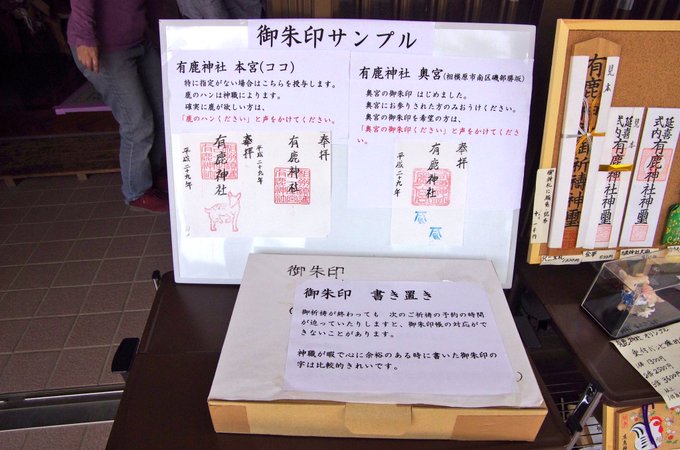 御朱印サンプル
有鹿神社 本宮(ココ)
特に指定がない場合はこちらを授与します。
鹿のハンは神職によります。
確実に鹿が欲しい方は、
「鹿のハンください」と声をかけてください。
奉拝
有鹿神社
平成二十九年
奉拝
有鹿神社
平成二十九年
有鹿神社 奥宮(相模原市南区磯部勝坂)
奥宮の御朱印 はじめました。
奥宮にお参りされた方のみおうけください。
奥宮の御朱印を希望の方は、
「奥宮の御朱印ください」と声をかけてください。
奉拝
有鹿神社
平成二十九年
御朱印
御朱印 書き置き
御祈祷が終わっても 次のご祈祷の時間
が迫っていたりしますと、御朱印帳の対応がで
きないことがあります。
神職が暇で心に余裕のある時に書いた御朱印の
字は比較的きれいです。
見本
有鹿
御祈祷神璽
見本
延喜
式内有鹿神社神璽
延喜
式内有鹿神社神璽